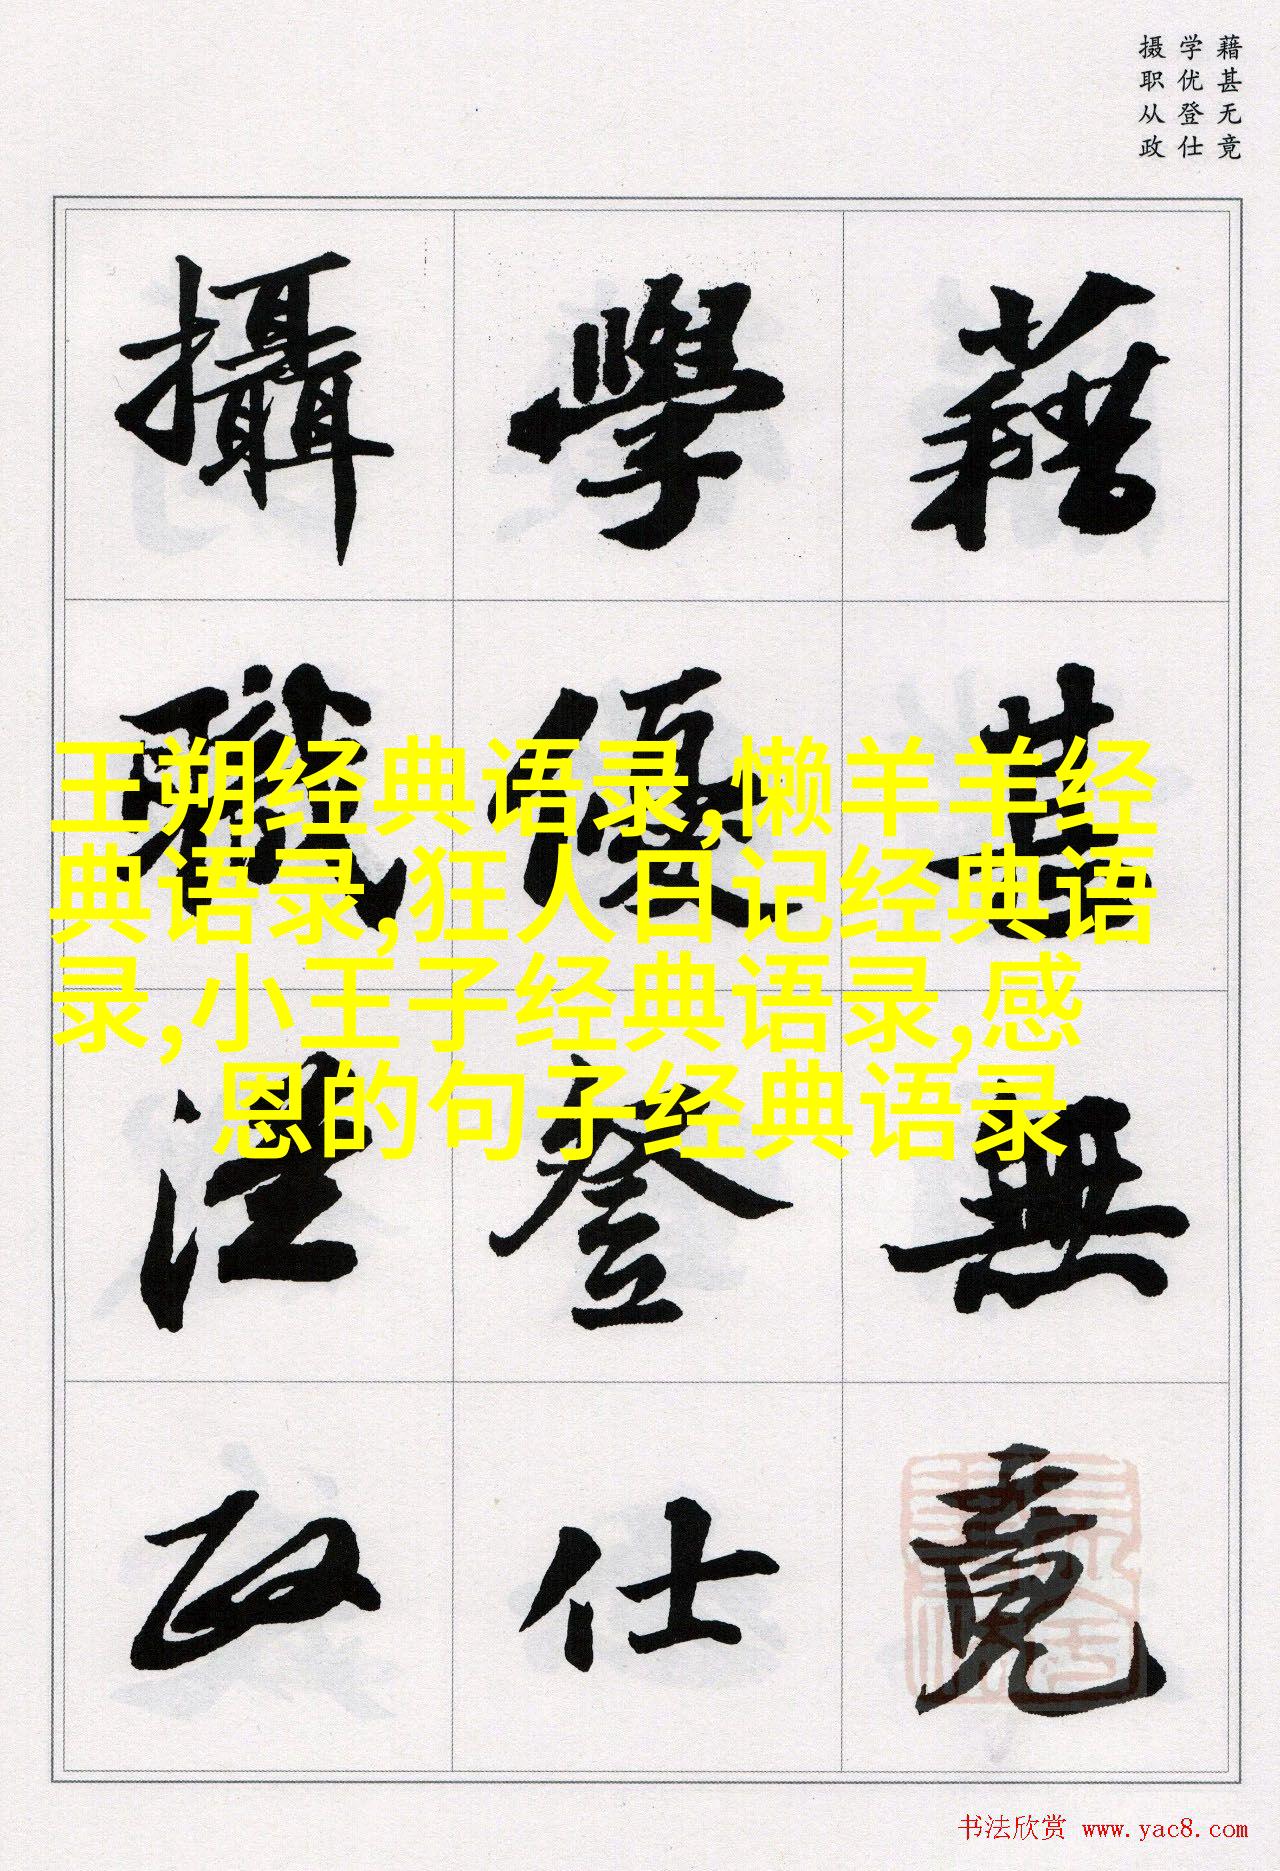 藉甚无竟
学优登仕
摄职从政
藉甚無竟
學優登仕
攝職從政
王朔经典语录,懒羊羊经
典语录,狂人日记经典语
录,小王子经典语录,感
恩的句子经典语录
书法欣赏 www.yac8.com